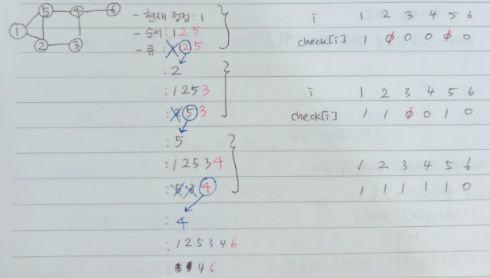 5 4 6
1
2 3
- 현재 정점 : 1
- 순서 : 1 2 5
- 큐 : 1 2 5
i 1 2 3 4 5 6
check[i] 1 0 0 0 0 0
: 2
: 1 2 5 3
: 2 5 3
i 1 2 3 4 5 6
check[i] 1 1 0 0 1 0
: 5
: 1 2 5 3 4
: 5 3 4
1 2 3 4 5 6
1 1 1 1 1 0
: 4
: 1 2 5 3 4 6
: 4 6